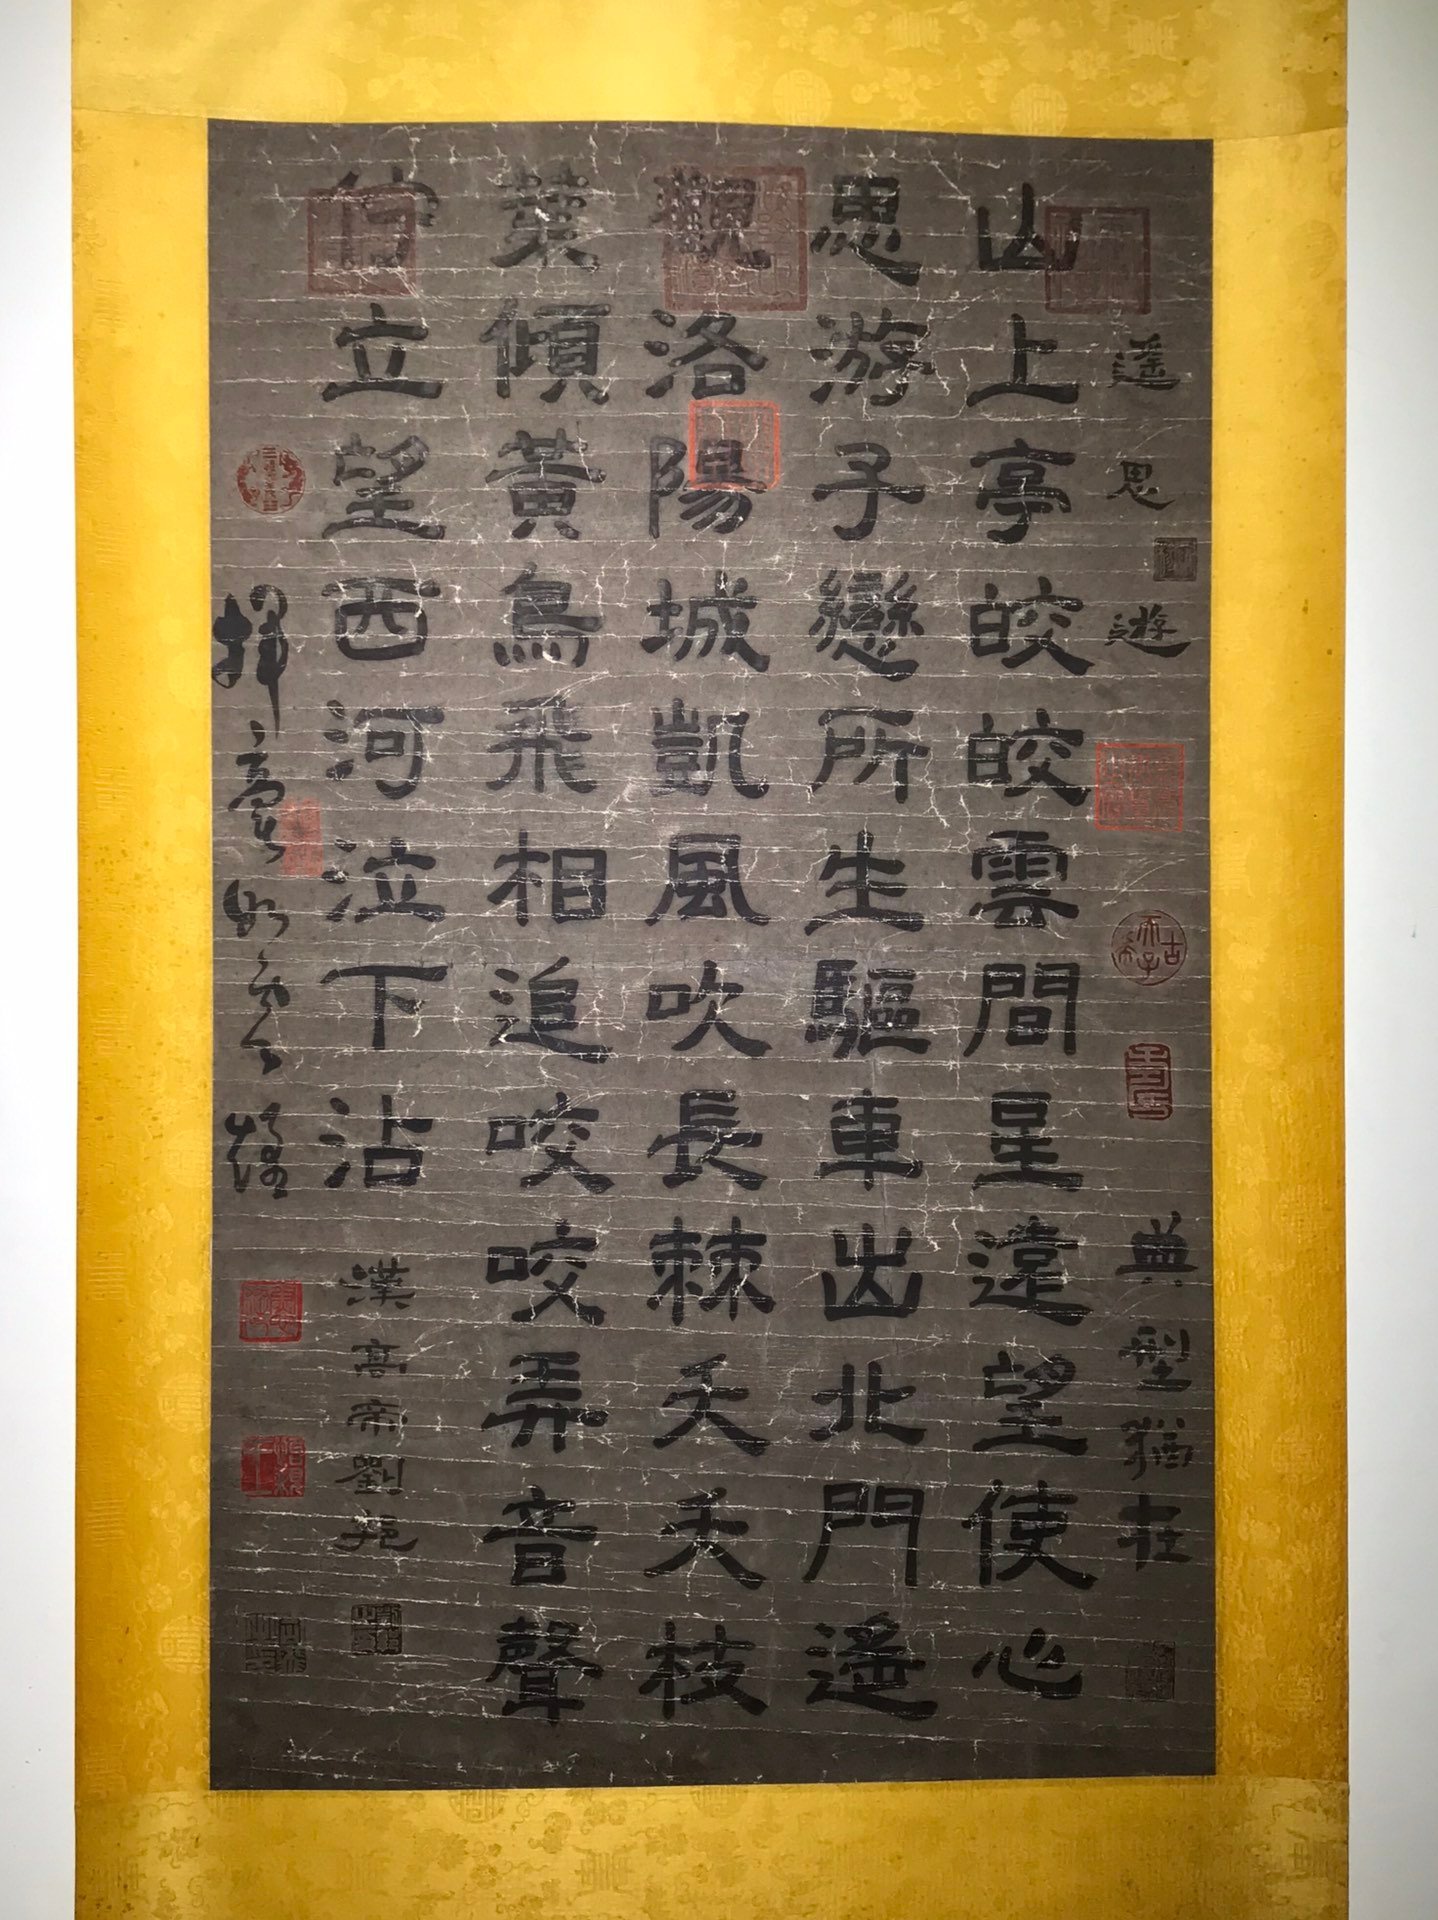 遥思遊
典型猶在
山上亭皎皎雲間星遠望使心
思游子戀所生驅車出北門遙
觀洛陽城凱風吹長棘夭夭枝
葉傾黃鳥飛相追咬咬弄音聲
佇立望西河泣下沾
漢高帝劉
揮毫
古希天子